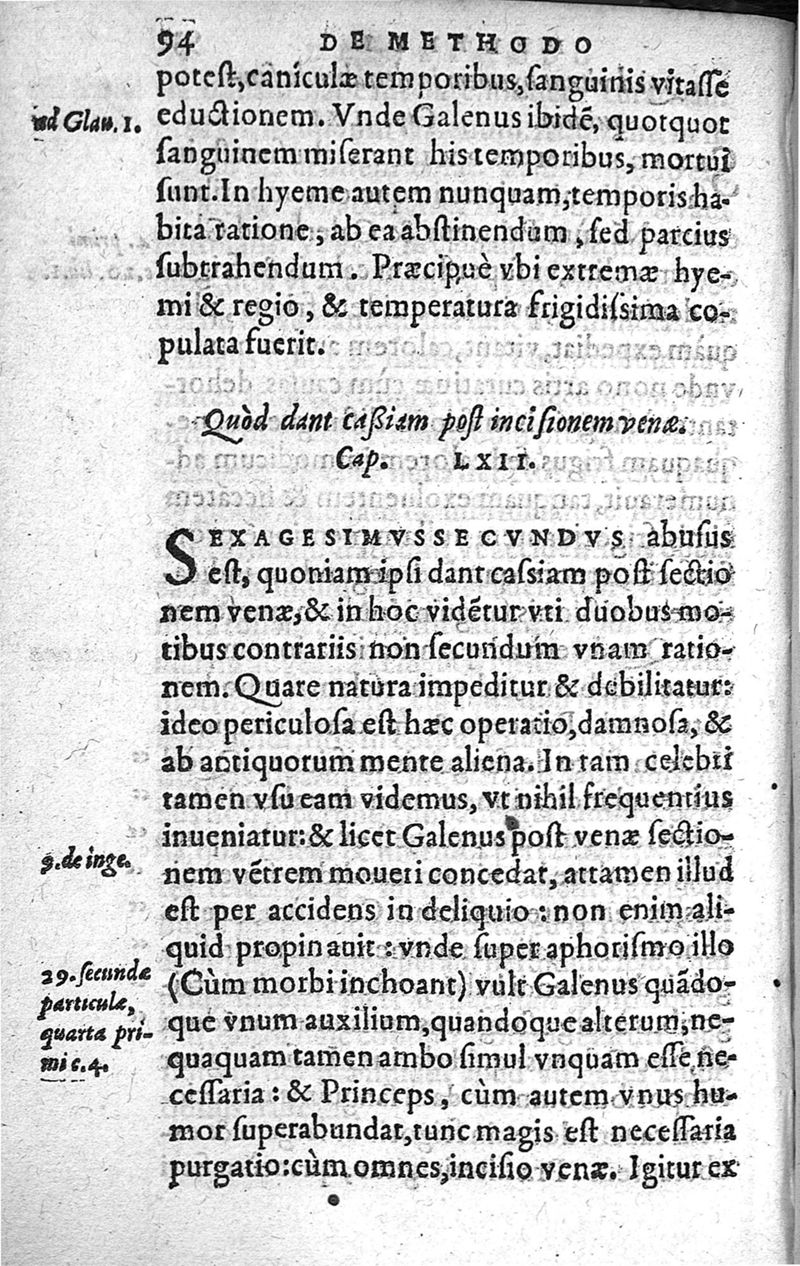 94 DE METHODO
potest, caniculæ temporibus, sanguinis vitasse
ad Glau. 1.
eductionem. Vnde Galenus ibidẽ, quotquot
sanguinem miserant his temporibus, mortui
sunt. In hyeme autem nunquam, temporis ha-
bita ratione, ab ea abstinendum, sed parcius
subtrahendum. Præcipuè vbi extremæ hye-
mi & regio, & temperatura frigidissima co-
pulata fuerit.
Quòd dant caßiam post incisionem venæ.
Cap. LXII.
SEXAGESIMVS SECVNDVS abusus
est, quoniam ipsi dant cassiam post sectio
nem venæ, & in hoc vidẽtur vti duobus mo-
tibus contrariis non secundum vnam ratio-
nem. Quare natura impeditur & debilitatur:
ideo periculosa est hæc operatio, damnosa, &
ab antiquorum mente aliena. In tam celebri
tamen vsu eam videmus, vt nihil frequentius
inueniatur: & licet Galenus post venæ sectio-
9. de inge.
nem vẽtrem moueri concedat, attamen illud
est per accidens in deliquio: non enim ali-
quid propinauit: vnde super aphorismo illo
29. secundæ
particulæ,
quarta pri-
mi c. 4.
(Cùm morbi inchoant) vult Galenus quãdo-
que vnum auxilium, quandoque alterum, ne-
quaquam tamen ambo simul vnquam esse ne-
cessaria: & Princeps, cùm autem vnus hu-
mor superabundat, tunc magis est necessaria
purgatio: cùm omnes, incisio venæ. Igitur ex